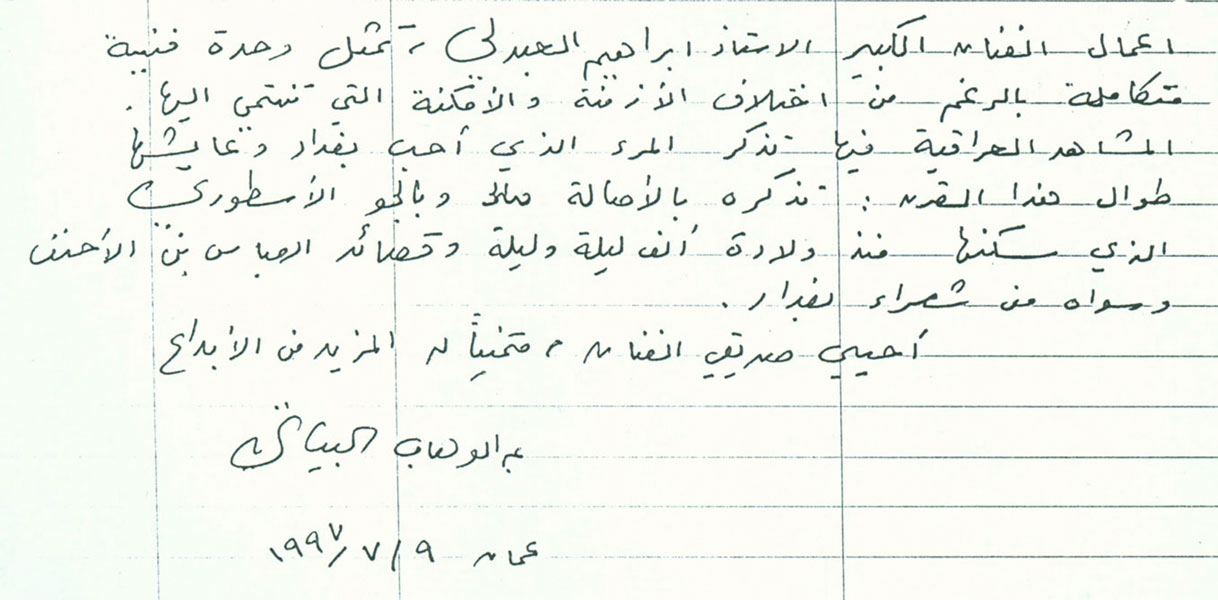 اعمال الفنان الكبير الاستاذ ابراهيم العبدلي، تمثل وحدة فنية
متكاملة بالرغم من اختلاف الأزمنة والأمكنة التي تنتمي اليها.
المشاهد العراقية فيها تذكر المرء الذي أحب بغداد وعايشها
طوال هذا القرن: تذكره بالأصالة وبالجو الأسطوري
الذي سكنها منذ ولادة ألف ليلة وليلة وقصائد العباس بن الأحنف
وسواه من شعراء بغداد.
أحيي صديقي الفنان، متمنياً له المزيد من الأبداع
عبد الوهاب البياتي
عمان ٩/٧/١٩٩٧